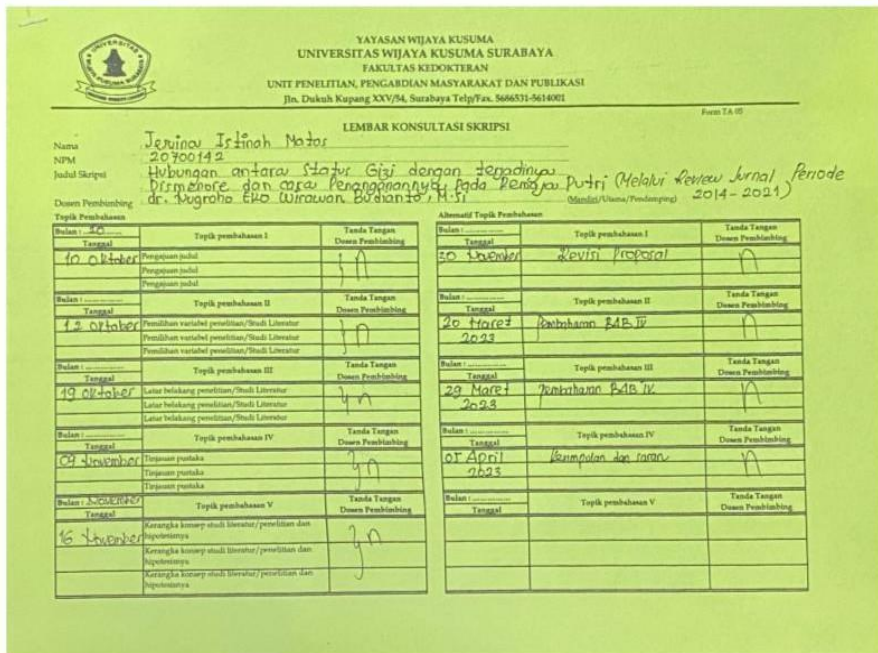 YAYASAN WIJAYA KUSUMA
UNIVERSITAS WIJAYA KUSUMA SURABAYA
FAKULTAS KEDOKTERAN
UNIT PENELITIAN, PENGABDIAN MASYARAKAT DAN PUBLIKASI
Jln. Dukuh Kupang XXV/54, Surabaya Telp/Fax. 5686531-5614001
Form TA 05
LEMBAR KONSULTASI SKRIPSI
Nama Jerina Istinah Matos
NPM 20700142
Judul Skripsi Hubungan antara Status Gizi dengan terjadinya
Dismenore dan cara Penanganannya Pada Remaja Putri (Melalui Review Jurnal Periode
2014-2021)
Dosen Pembimbing dr. Nugroho Eko Wirawan Budianto, M.Si (Mandiri/Utama/Pendamping)
Topik Pembahasan
Bulan : 10 Topik pembahasan I Tanda Tangan
Tanggal Dosen Pembimbing
10 Oktober Pengajuan judul
Pengajuan judul
Pengajuan judul
Bulan : Topik pembahasan II Tanda Tangan
Tanggal Dosen Pembimbing
12 Oktober Pemilihan variabel penelitian/Studi Literatur
Pemilihan variabel penelitian/Studi Literatur
Pemilihan variabel penelitian/Studi Literatur
Bulan : Topik pembahasan III Tanda Tangan
Tanggal Dosen Pembimbing
19 Oktober Latar belakang penelitian/Studi Literatur
Latar belakang penelitian/Studi Literatur
Latar belakang penelitian/Studi Literatur
Bulan : Topik pembahasan IV Tanda Tangan
Tanggal Dosen Pembimbing
09 November Tinjauan pustaka
Tinjauan pustaka
Tinjauan pustaka
Bulan : November Topik pembahasan V Tanda Tangan
Tanggal Dosen Pembimbing
16 November Kerangka konsep studi literatur/penelitian dan
hipotesisnya
Kerangka konsep studi literatur/penelitian dan
hipotesisnya
Kerangka konsep studi literatur/penelitian dan
hipotesisnya
Alternatif Topik Pembahasan
Bulan : Topik pembahasan I Tanda Tangan
Tanggal Dosen Pembimbing
30 November Revisi Proposal
Bulan : Topik pembahasan II Tanda Tangan
Tanggal Dosen Pembimbing
20 Maret Pembahasan BAB IV
2023
Bulan : Topik pembahasan III Tanda Tangan
Tanggal Dosen Pembimbing
29 Maret Pembahasan BAB IV
2023
Bulan : Topik pembahasan IV Tanda Tangan
Tanggal Dosen Pembimbing
April Kesimpulan dan saran
2023
Bulan : Topik pembahasan V Tanda Tangan
Tanggal Dosen Pembimbing